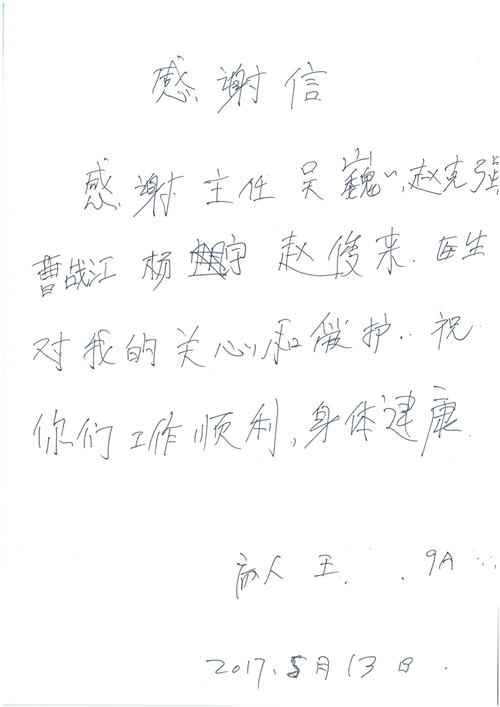 感谢信
感谢主任吴巍、赵克强
曹战江 杨宇 赵俊来.医生
对我的关心和爱护..祝
你们工作顺利,身体健康
病人 王 9A
2017.5月13日.